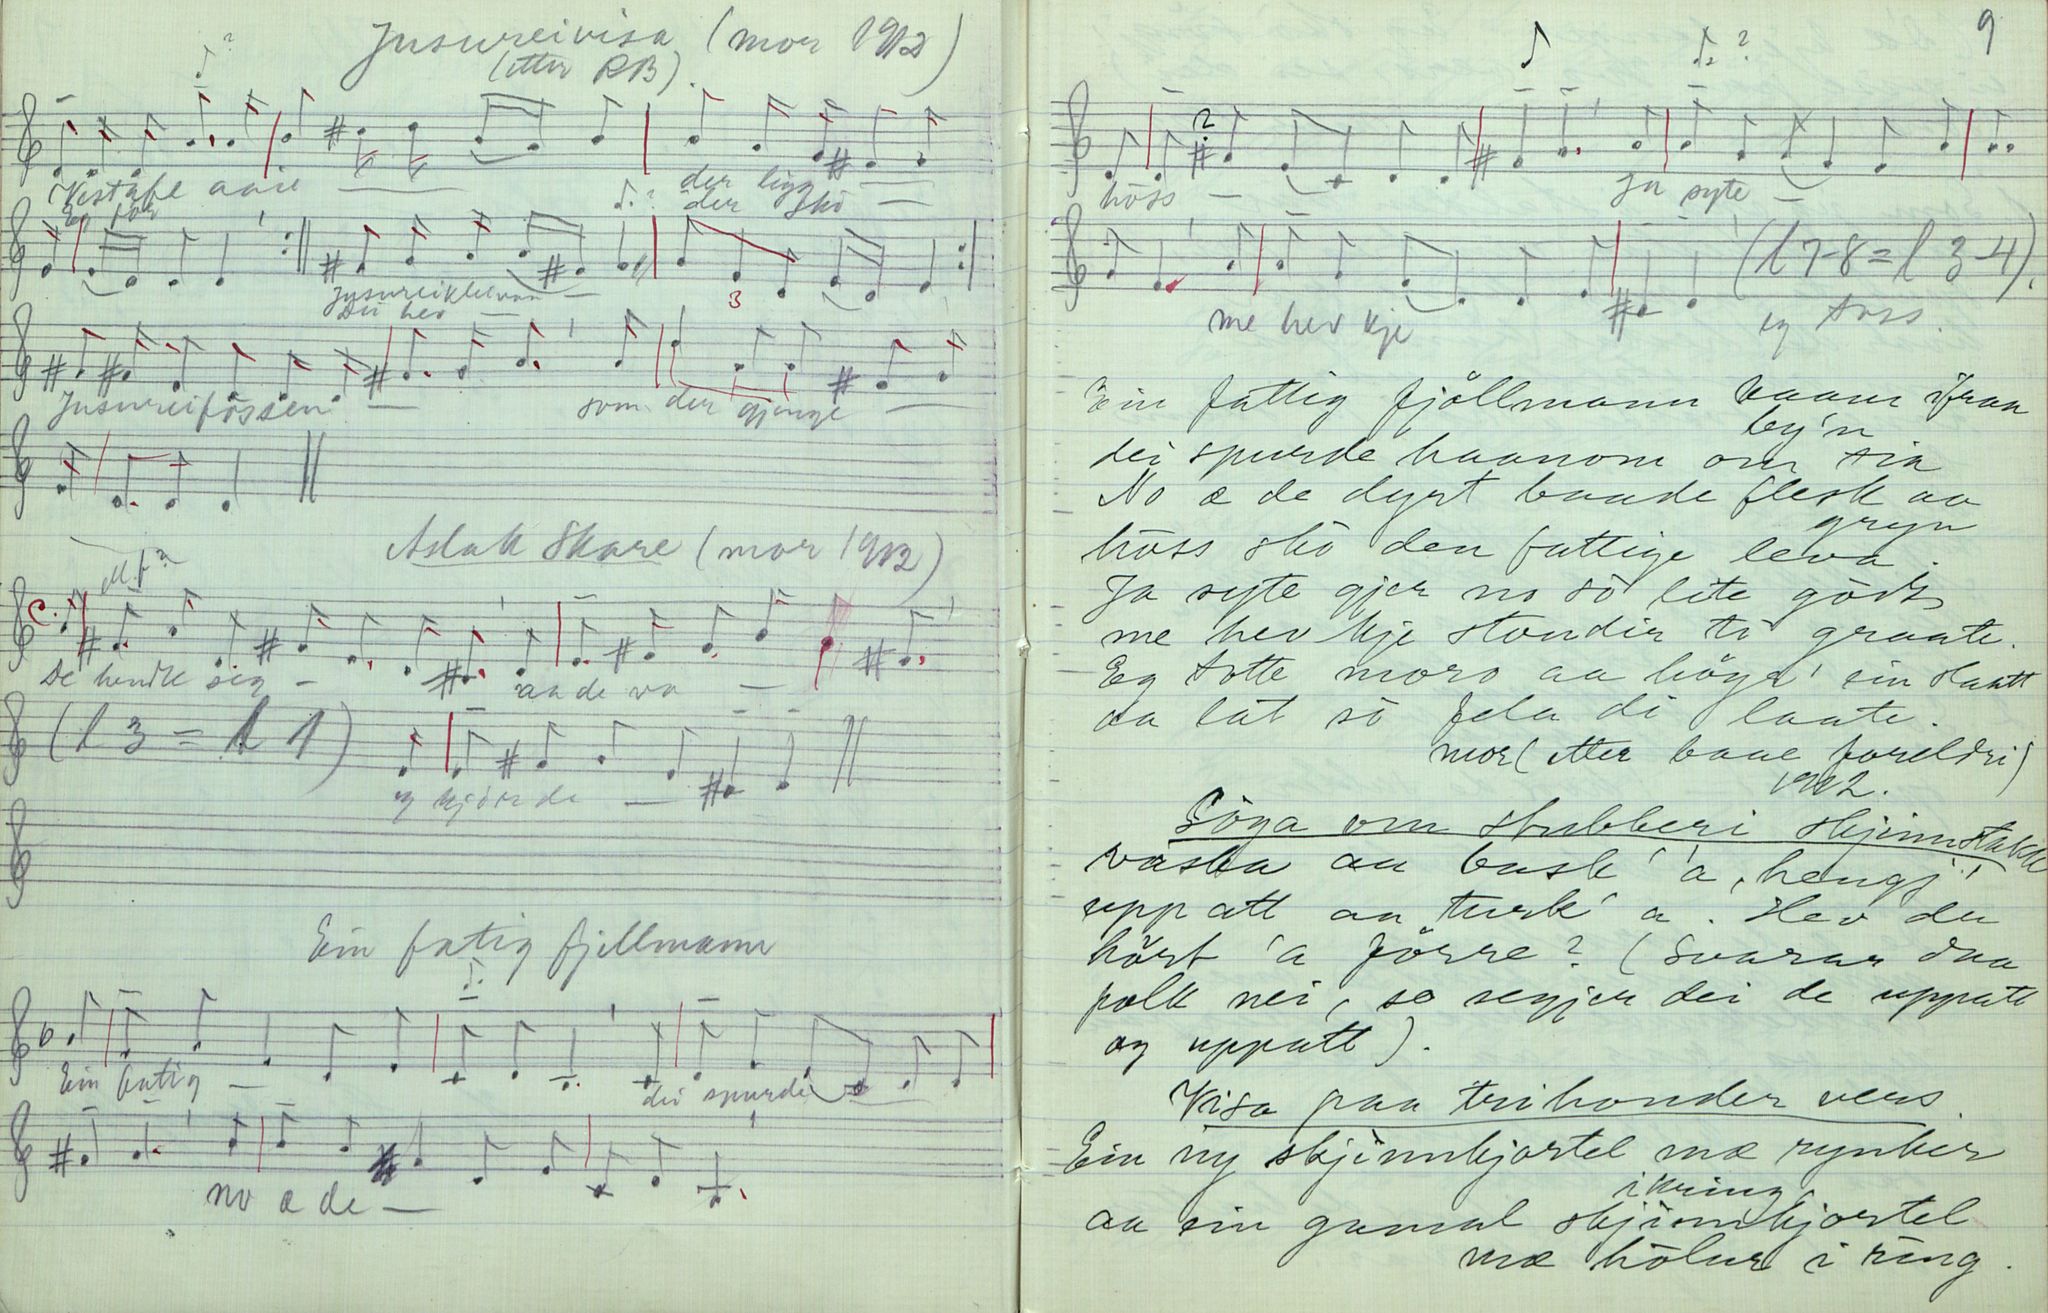 Jusureivisa (mor 1912)
(etter RB).
♪?
Vestafe aaie
Eg for
der ligg
der skò
♪.?
Jusureikleivan
Du hev
3
Jusureifössen
som der gjenge
Aslak Skare (mor 1912)
M.f?
C.
De hendte seg
aa de va
(l 3 = l 1)
eg kjörde
Ein fatig fjellmann
Ein fatig
dei spurde
no æ de
9
♪ ♪.?
?
höss
Ja syte
me hev kje
(l 7-8 = l 3-4).
eg toss.
Ein fattig fjöllmann kaam ifraa
by'n
dei spurde haanom om sia
No æ de dyrt baade flesk aa
gryn
höss skò den fattige leva.
Ja syte gjer no sò lite gödt
me hev kje stundir ti graate.
Eg totte moro aa höyra' ein slaatt
aa lat sò fela di laate.
mor (etter baae foreldri)
1912.
Söga om stubberi skjinnstakk
vaska aa bask' 'a, hengj'
uppatt aa turk' a. Hev du
hört 'a förre? (Svarar daa
folk nei, so segjer dei de uppatt
og uppatt).
Visa paa trihonder vers.
Ein ny skjinnkjortel mæ rynker
ikring
aa ein gamal skjinnkjortel
mæ hölur i ring.